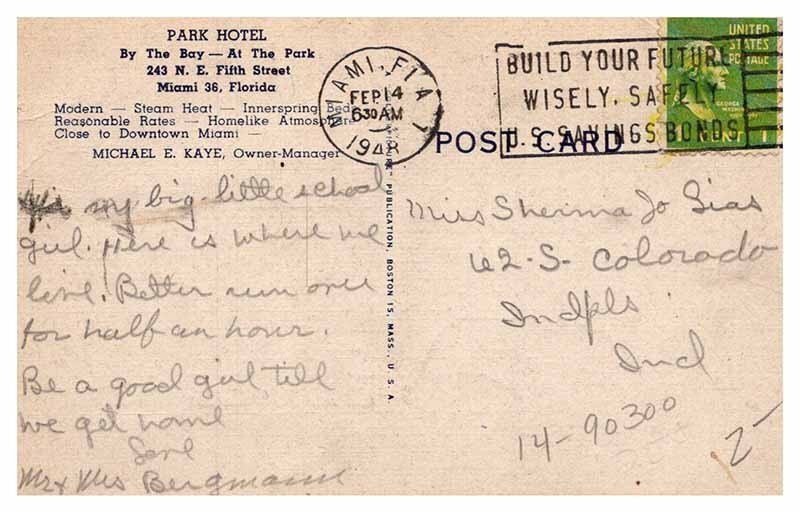 PARK HOTEL
By The Bay — At The Park
243 N. E. Fifth Street
Miami 36, Florida
Modern — Steam Heat — Innerspring Beds
Reasonable Rates — Homelike Atmosphere
Close to Downtown Miami —
MICHAEL E. KAYE, Owner-Manager
MIAMI, FLA
FEB 14
630 AM
1948
BUILD YOUR FUTURE
WISELY, SAFELY
U.S. SAVINGS BONDS
UNITED
STATES
POSTAGE
GEORGE
CENT 1
POST CARD
PUBLICATION, BOSTON 15, MASS., U.S.A.
my big little school
girl. Here is where we
live. Better run over
for half an hour.
Be a good girl till
we get home
Mr & Mrs Bergmann
Miss Sherma Jo Sias
62-S- Colorado
Indpls
Ind
14-90300
2-